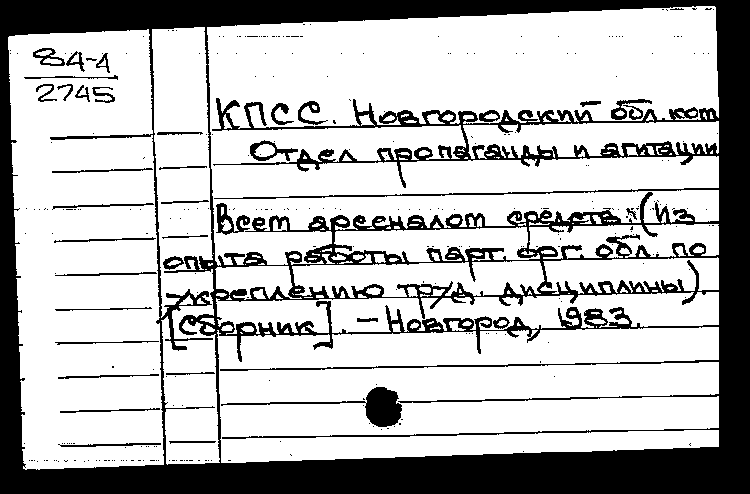 84-4
2745
КПСС. Новгородский обл. ком
Отдел пропаганды и агитации
Всем арсеналом средств: (Из
опыта работы парт. орг. обл. по
укреплению труд. дисциплины).
[Сборник]. – Новгород, 1983.